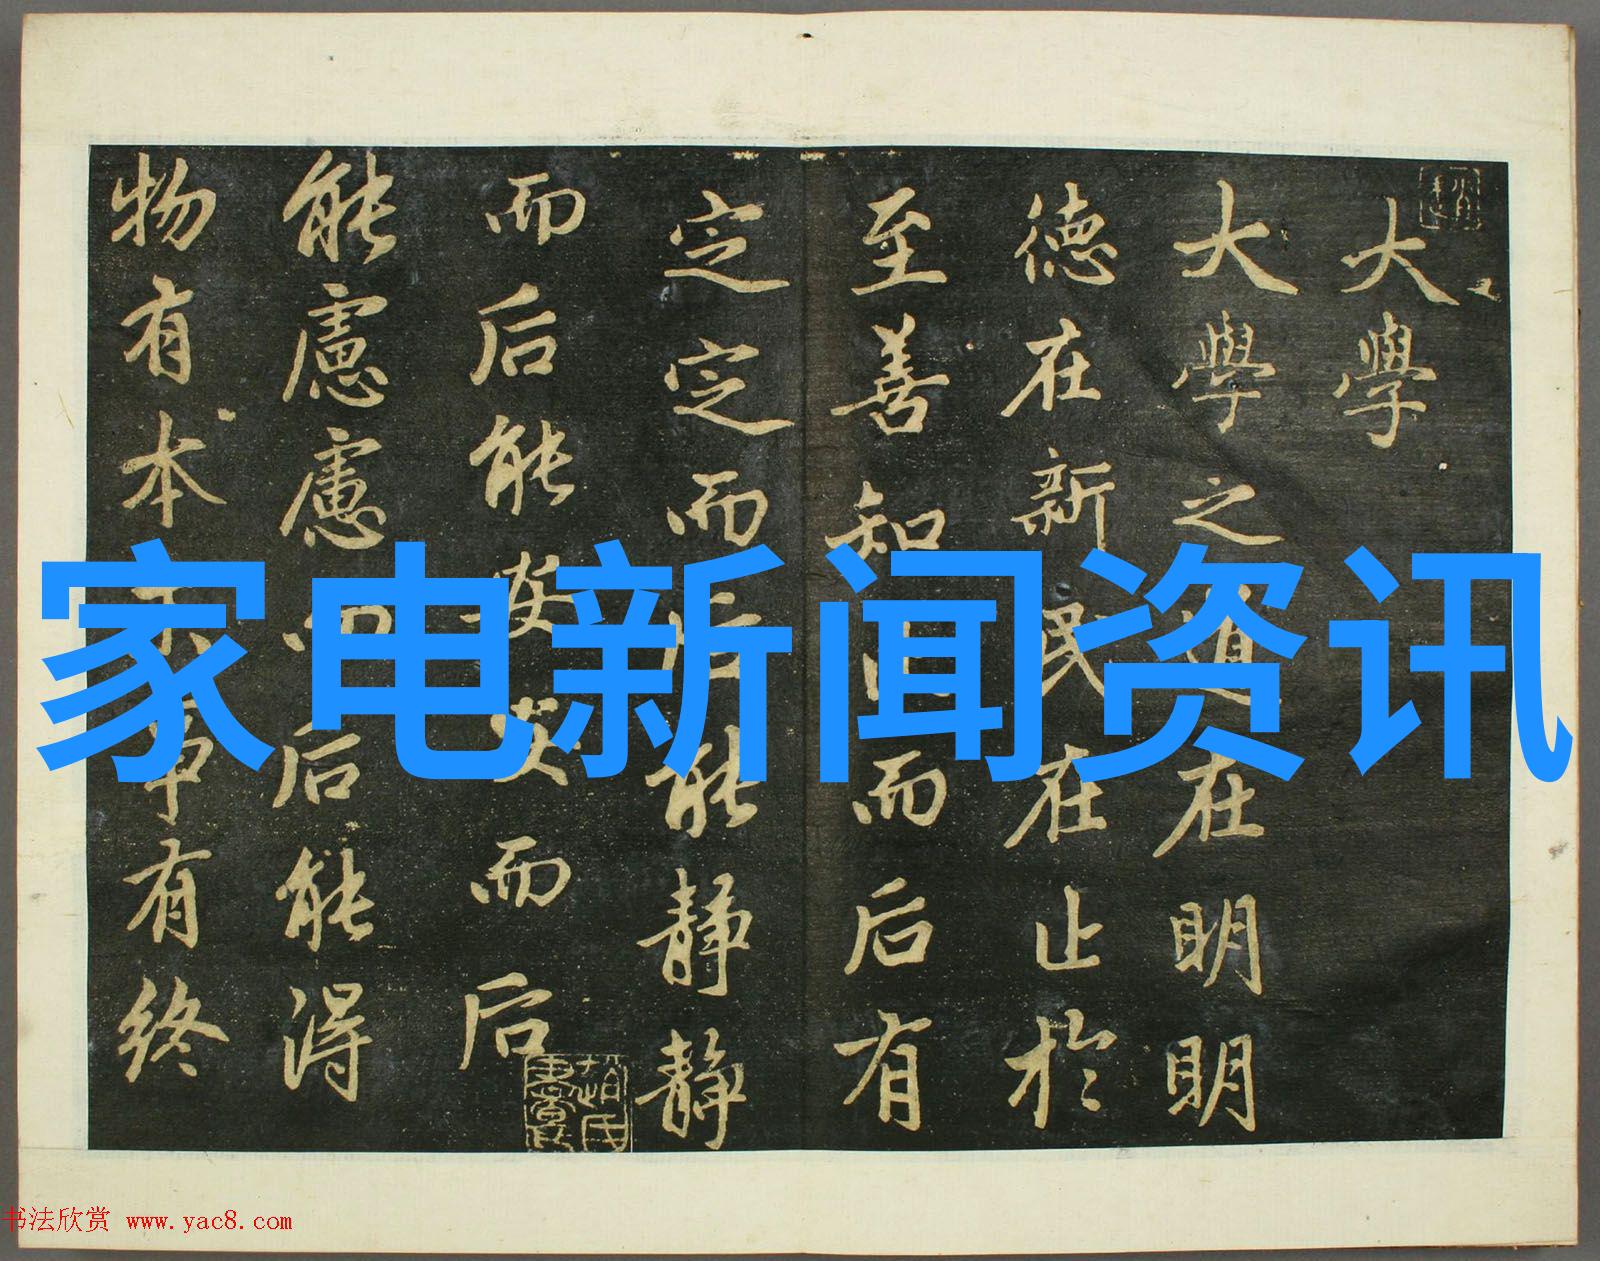 大學
大學之道在明明
德在新民在止於
至善知止而后有
定定而后能静静
而后能安安而后
能慮慮而后能得
物有本末事有終
家电新闻资讯
书法欣赏 www.yac8.com